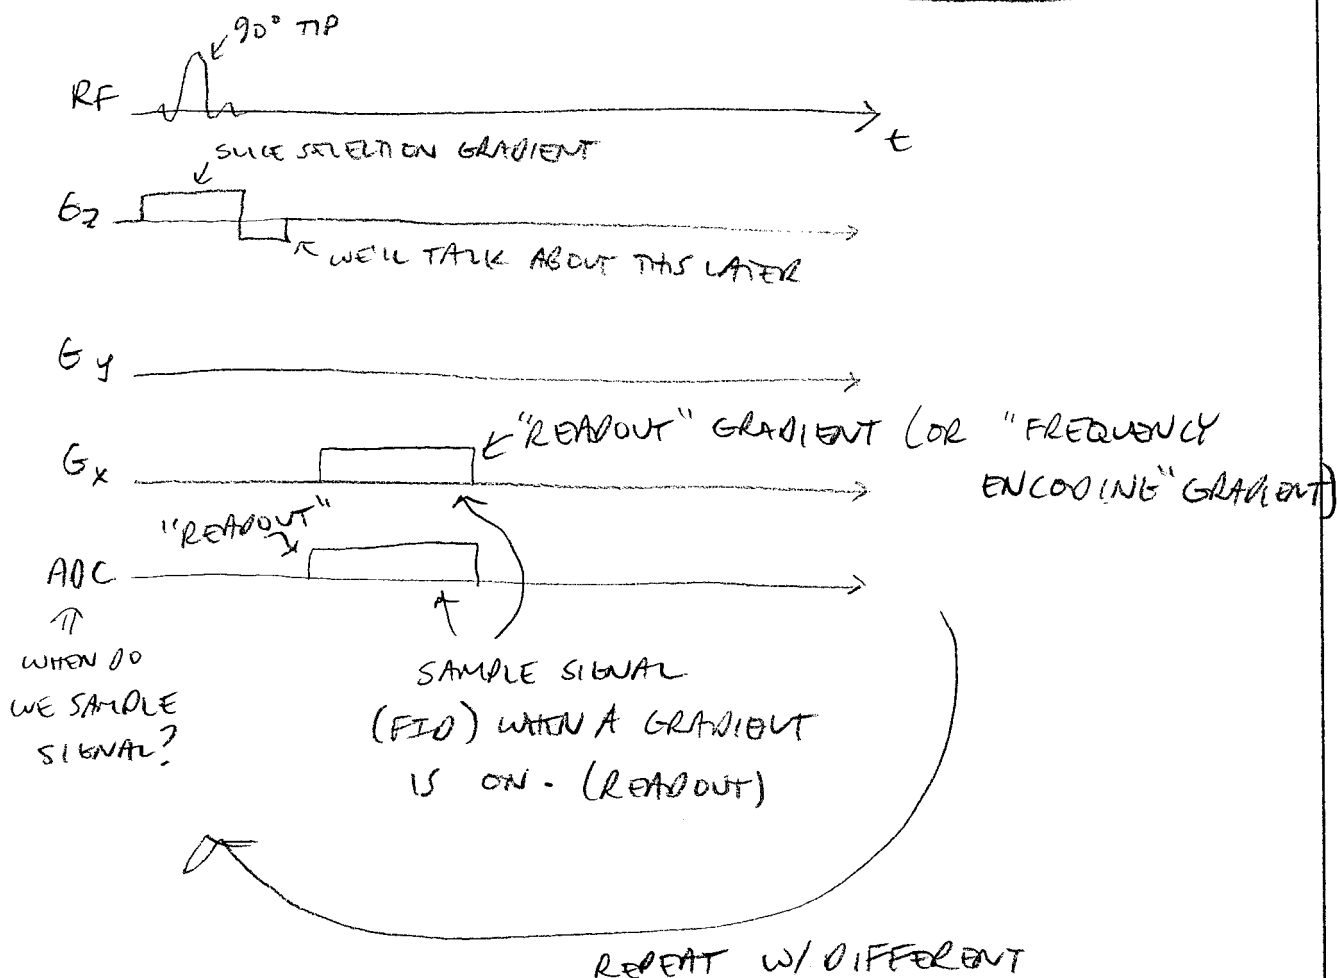 90° TIP
RF
t
SLICE SELECTION GRADIENT
Gz
WE'LL TALK ABOUT THIS LATER
Gy
"READOUT" GRADIENT (OR "FREQUENCY
ENCODING" GRADIENT)
Gx
"READOUT"
ADC
WHEN DO
WE SAMPLE
SIGNAL?
SAMPLE SIGNAL
(FID) WHEN A GRADIENT
IS ON. (READOUT)
REPEAT W/ DIFFERENT